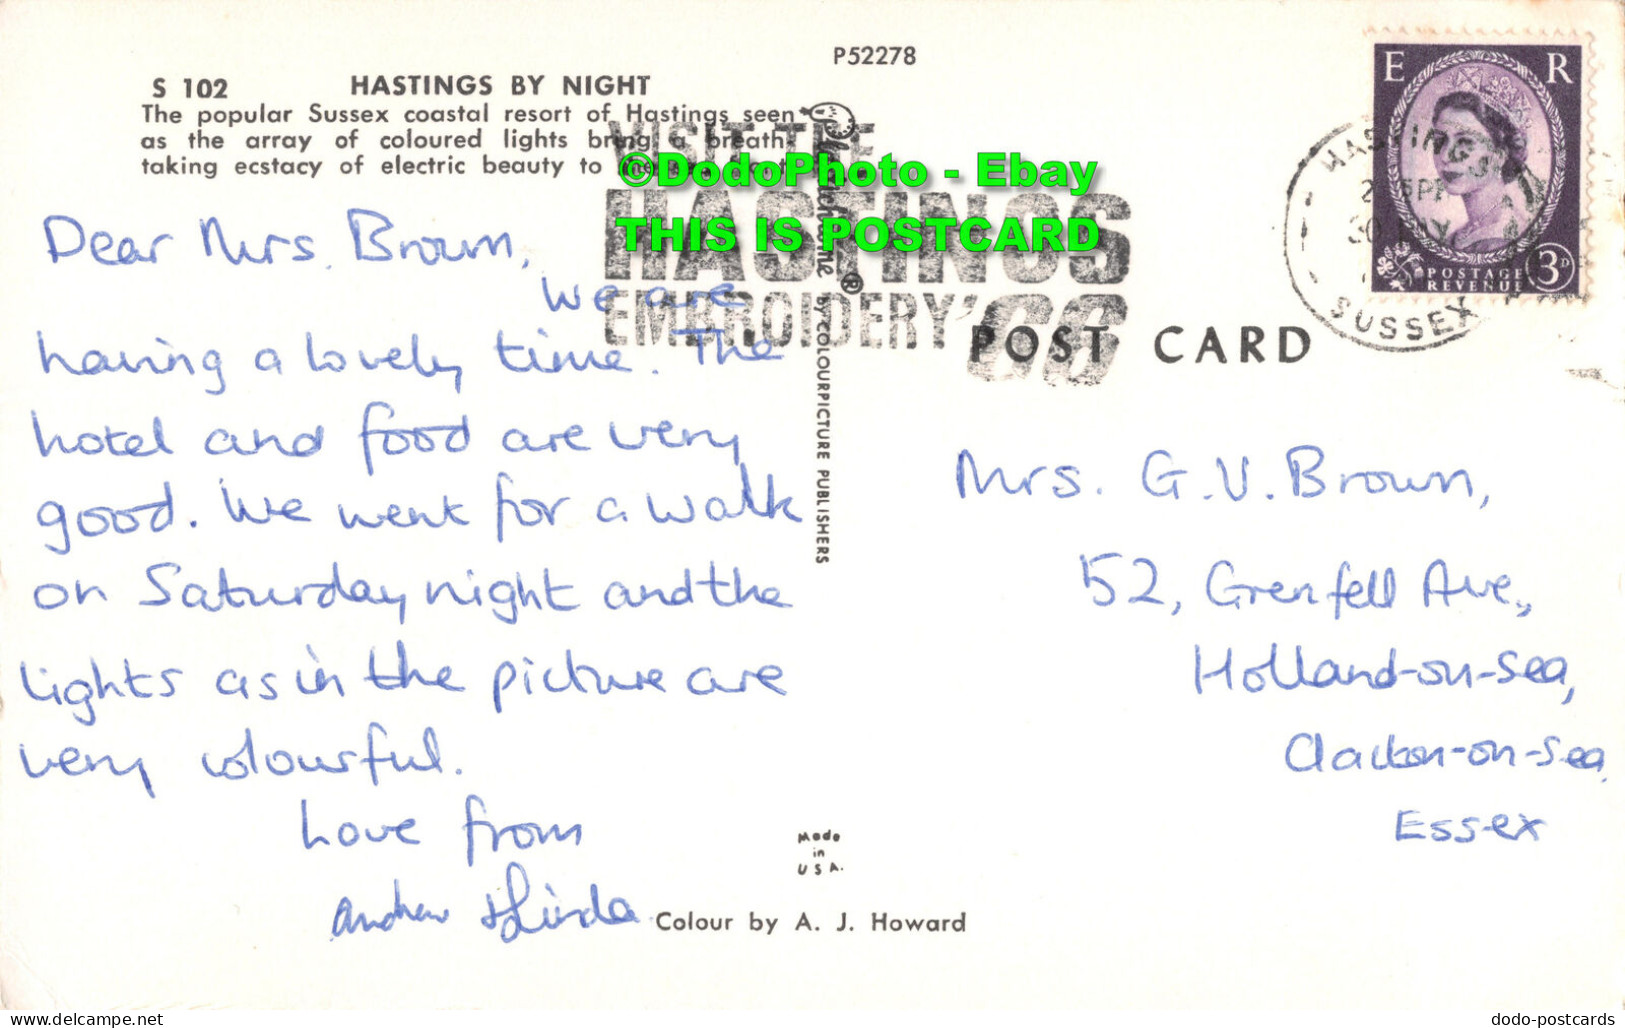 P52278
S 102 HASTINGS BY NIGHT
The popular Sussex coastal resort of Hastings seen
as the array of coloured lights bring a breath
taking ecstacy of electric beauty to
Dear Mrs. Brown,
We are
having a lovely time. The
hotel and food are very
good. We went for a walk
on Saturday night and the
lights as in the picture are
very colourful.
Love from
Andrew & Linda
VISIT THE
HASTINGS
EMBROIDERY '66
©DodoPhoto - Ebay
THIS IS POSTCARD
Plastichrome®
by COLOURPICTURE PUBLISHERS
POST CARD
E R
POSTAGE
REVENUE
3D
HASTINGS
SUSSEX
Mrs. G.V. Brown,
52, Grenfell Ave.,
Holland-on-sea,
Clacton-on-sea,
Essex
Made
in
USA.
Colour by A. J. Howard
www.delcampe.net
dodo-postcards